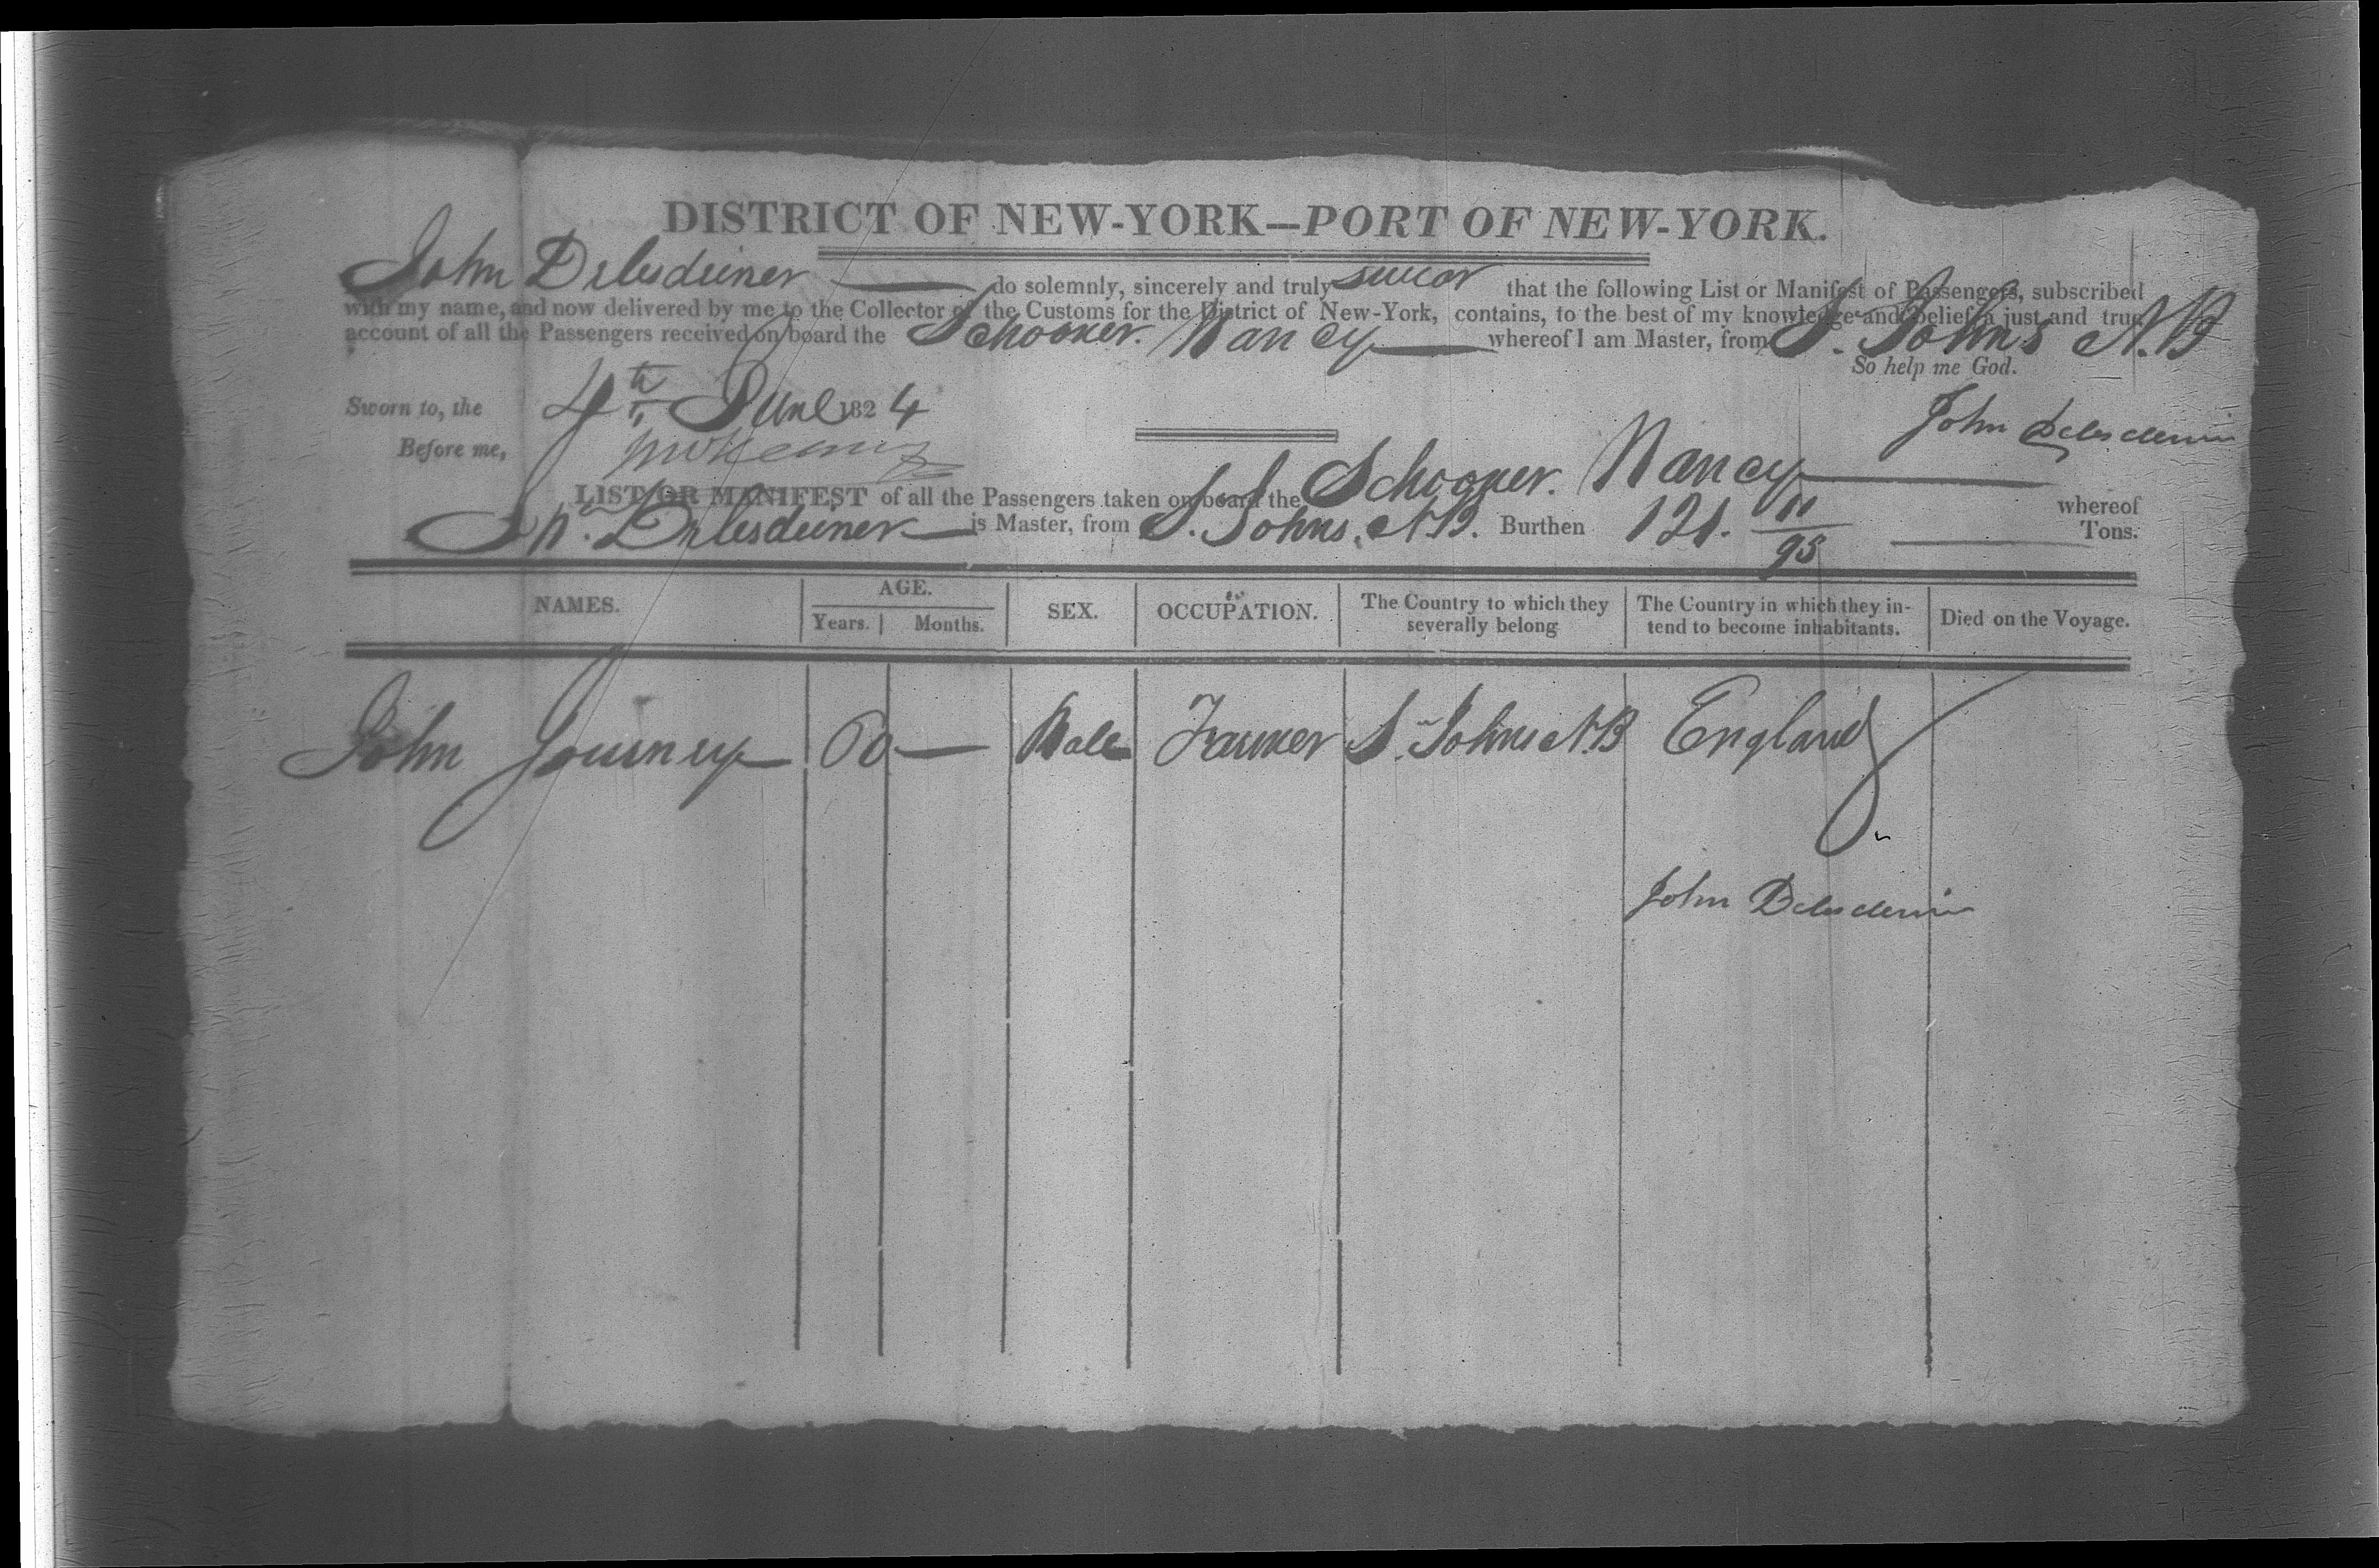 DISTRICT OF NEW-YORK—PORT OF NEW-YORK.
John Delesdeiner do solemnly, sincerely and truly swear that the following List or Manifest of Passengers, subscribed
with my name, and now delivered by me to the Collector of the Customs for the District of New-York, contains, to the best of my knowledge and belief a just and true
account of all the Passengers received on board the Schooner. Nancy whereof I am Master, from S. Johns N.B
So help me God.
Sworn to, the 4th June 1824
John
Before me,
LIST OR MANIFEST of all the Passengers taken on board the Schooner. Nancy whereof
Jn. Delesdeiner is Master, from S. Johns, N.B. Burthen 121. 11/95 Tons.
NAMES. AGE. SEX. OCCUPATION. The Country to which they severally belong The Country in which they intend to become inhabitants. Died on the Voyage.
Years. Months.
John Journey 60 — Male Farmer S. Johns N.B England
John